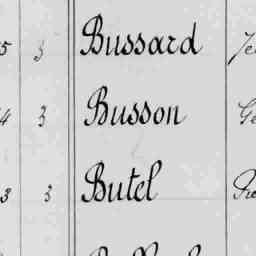 5 3 Bussard
4 3 Busson
3 3 Butel